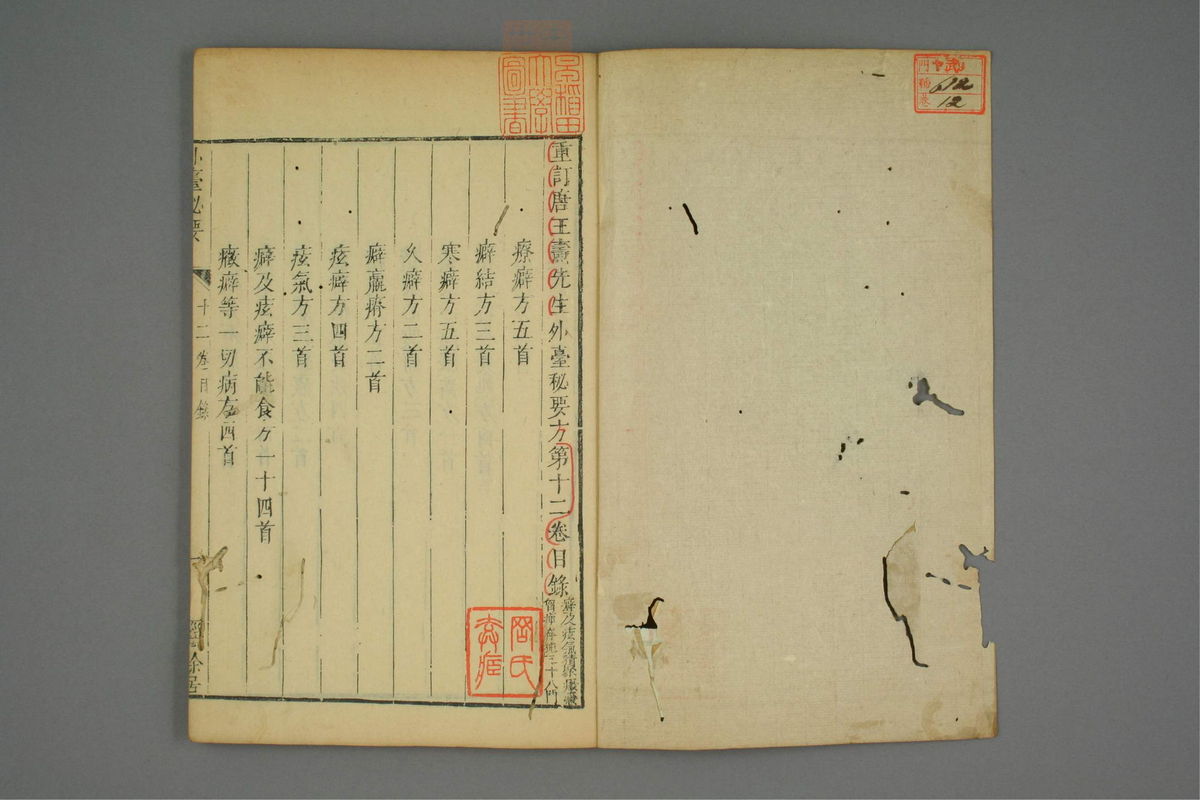 重訂唐王燾先生外臺秘要方第十二卷目錄
癖及痃氣積聚癥瘕
胷痺奔㹠三十八門
療癖方五首
癖結方三首
寒癖方五首
久癖方二首
癖羸瘠方二首
痃癖方四首
痃氣方三首
癖及痃癖不能食方一十四首
癥癖等一切病方四首
外臺秘要
十二卷目錄
經餘居
早稻田大學圖書
門
號
卷
12